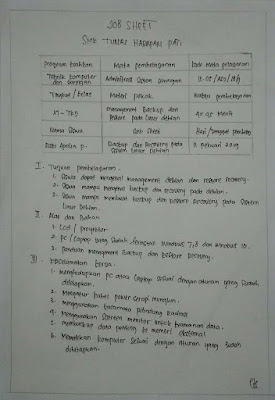 JOB SHEET
SMK TUNAS HARAPAN PATI
Program keahlian | Mata pembelajaran | Kode Mata pelajaran
Teknik komputer dan jaringan | Administrasi Sistem Jaringan
Tingkat / kelas | Materi pokok | Alokasi pembelajaran
XI - TKJ | Management Backup dan Restore pada Linux debian | 45 Menit
Nama siswa | Job Sheet | Hari / tanggal
Backup dan Recovery pada Sistem Linux Debian | Februari 2019
I. Tujuan pembelajaran.
1. Siswa dapat mengenal management debian dan restore recovery.
2. Siswa mampu mengenal backup dan recovery pada debian.
3. Siswa mampu membuat backup dan restore recovery pada sistem
Linux Debian.
II. Alat dan Bahan
1. LCD / proyektor
2. pc / laptop yang sudah terinstal windows 7, 8 dan windows 10.
3. panduan management Backup dan Restore Recovery.
III. Keselamatan kerja.
1. menghidupkan pc atau laptop sesuai dengan aturan yang sudah
ditetapkan.
2. Mengatur kabel power serapi mungkin.
3. menggunakan kacamata pelindung radiasi
4. Menggunakan screen monitor untuk keamanan data.
5. membackup data penting ke memori eksternal
6. Mematikan komputer sesuai dengan aturan yang sudah
ditetapkan.